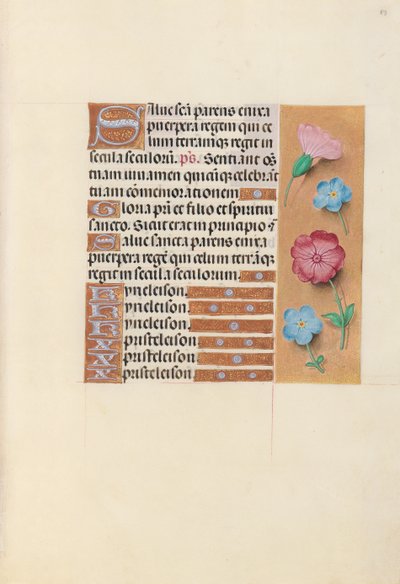 Salue sc̄a parens enixa
puerpera regem qui ce
lum terramq̄ regit in
secula seculorum. ps. Sentiant oēs
tuum iuuamen quicūq̄ celebrāt
tuam cōmemorationem
Gloria pr̄i et filio et spiritui
sancto. Sicut erat in principio
Salue sancta parens enixa
puerpera regē qui celum terrāq̄
regit in secula seculorum.
kyrieleison.
kyrieleison.
kyrieleison.
xpristeleison.
xpristeleison.
xpristeleison.